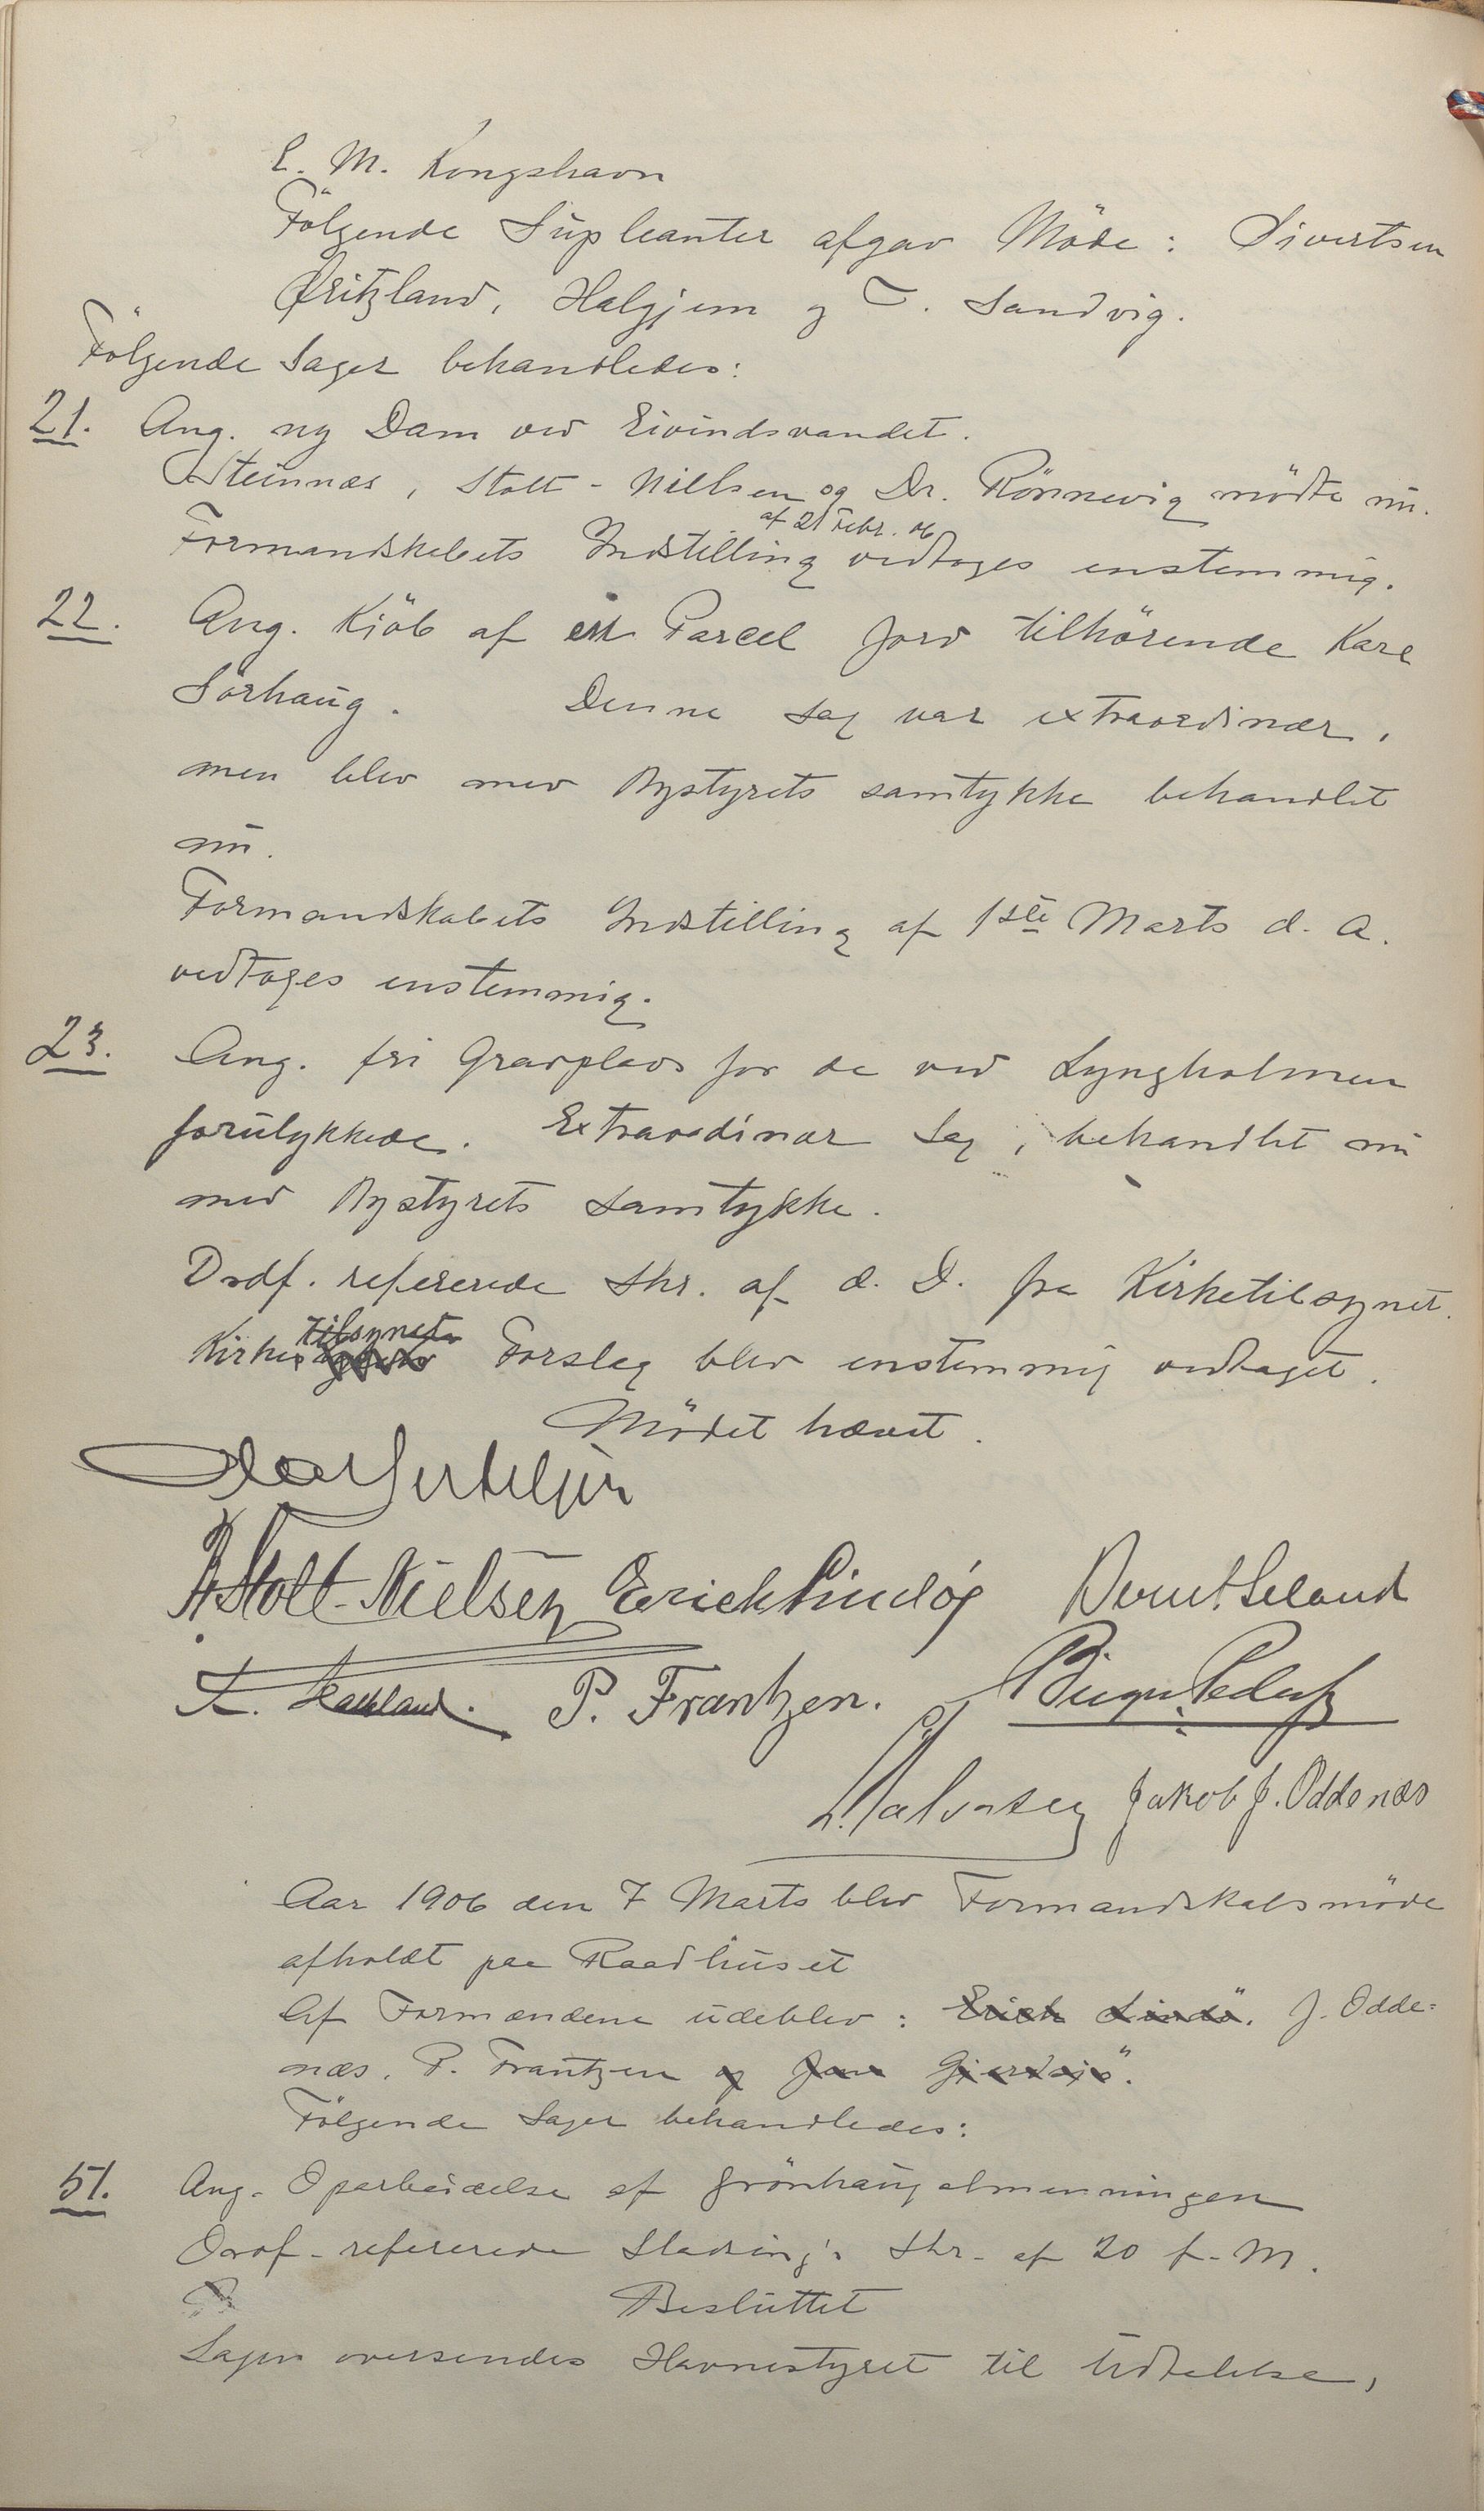 E. M. Kongshavn
Følgende Supleanter afgav Møde: Sivertsen
Fritzland, Helgjem og T. Sandvig.
Følgende Sager behandledes:
21. Ang. ny Dam ved Eivindsvandet.
Steinnæs, Stolt-Nielsen og Dr. Rönnevig mødte nu.
af 21 Febr. 06
Formandskabets Indstilling vedtoges enstemmig.
22. Ang. Kjöb af en Parcel Jord tilhörende Karl
Sörhaug. Denne Sag var extraordinær,
men blev med Bystyrets samtykke behandlet
nu.
Formandskabets Indstilling af 1ste Marts d. A.
vedtoges enstemmig.
23. Ang. fri Gravplads for de ved Lyngholmen
forulykkede. Extraordinær Sag, behandlet nu
med Bystyrets Samtykke.
Ordf. refererede Skr. af d. D. fra Kirketilsynet.
tilsynets
Kirke Forslag blev enstemmig vedtaget.
Mödet hævet.
B Stolt-Nielsen Erich Lindøe Bernt Seland
P. Frantzen. Birger Pedersen
Halvorsen Jakob J. Oddenæs
Aar 1906 den 7 Marts blev Formandskabsmöde
afholdt paa Raadhuset
Af Formændene udeblev: Erich Lindö. J. Odde=
næs, P. Frantzen og
Følgende Sager behandledes:
51. Ang. Oparbeidelse af Grönhaugalmenningen
Ordf. refererede Stadsing's Skr. af 20 f. M.
Besluttet
Sagen oversendes Havnestyret til Udtalelse,